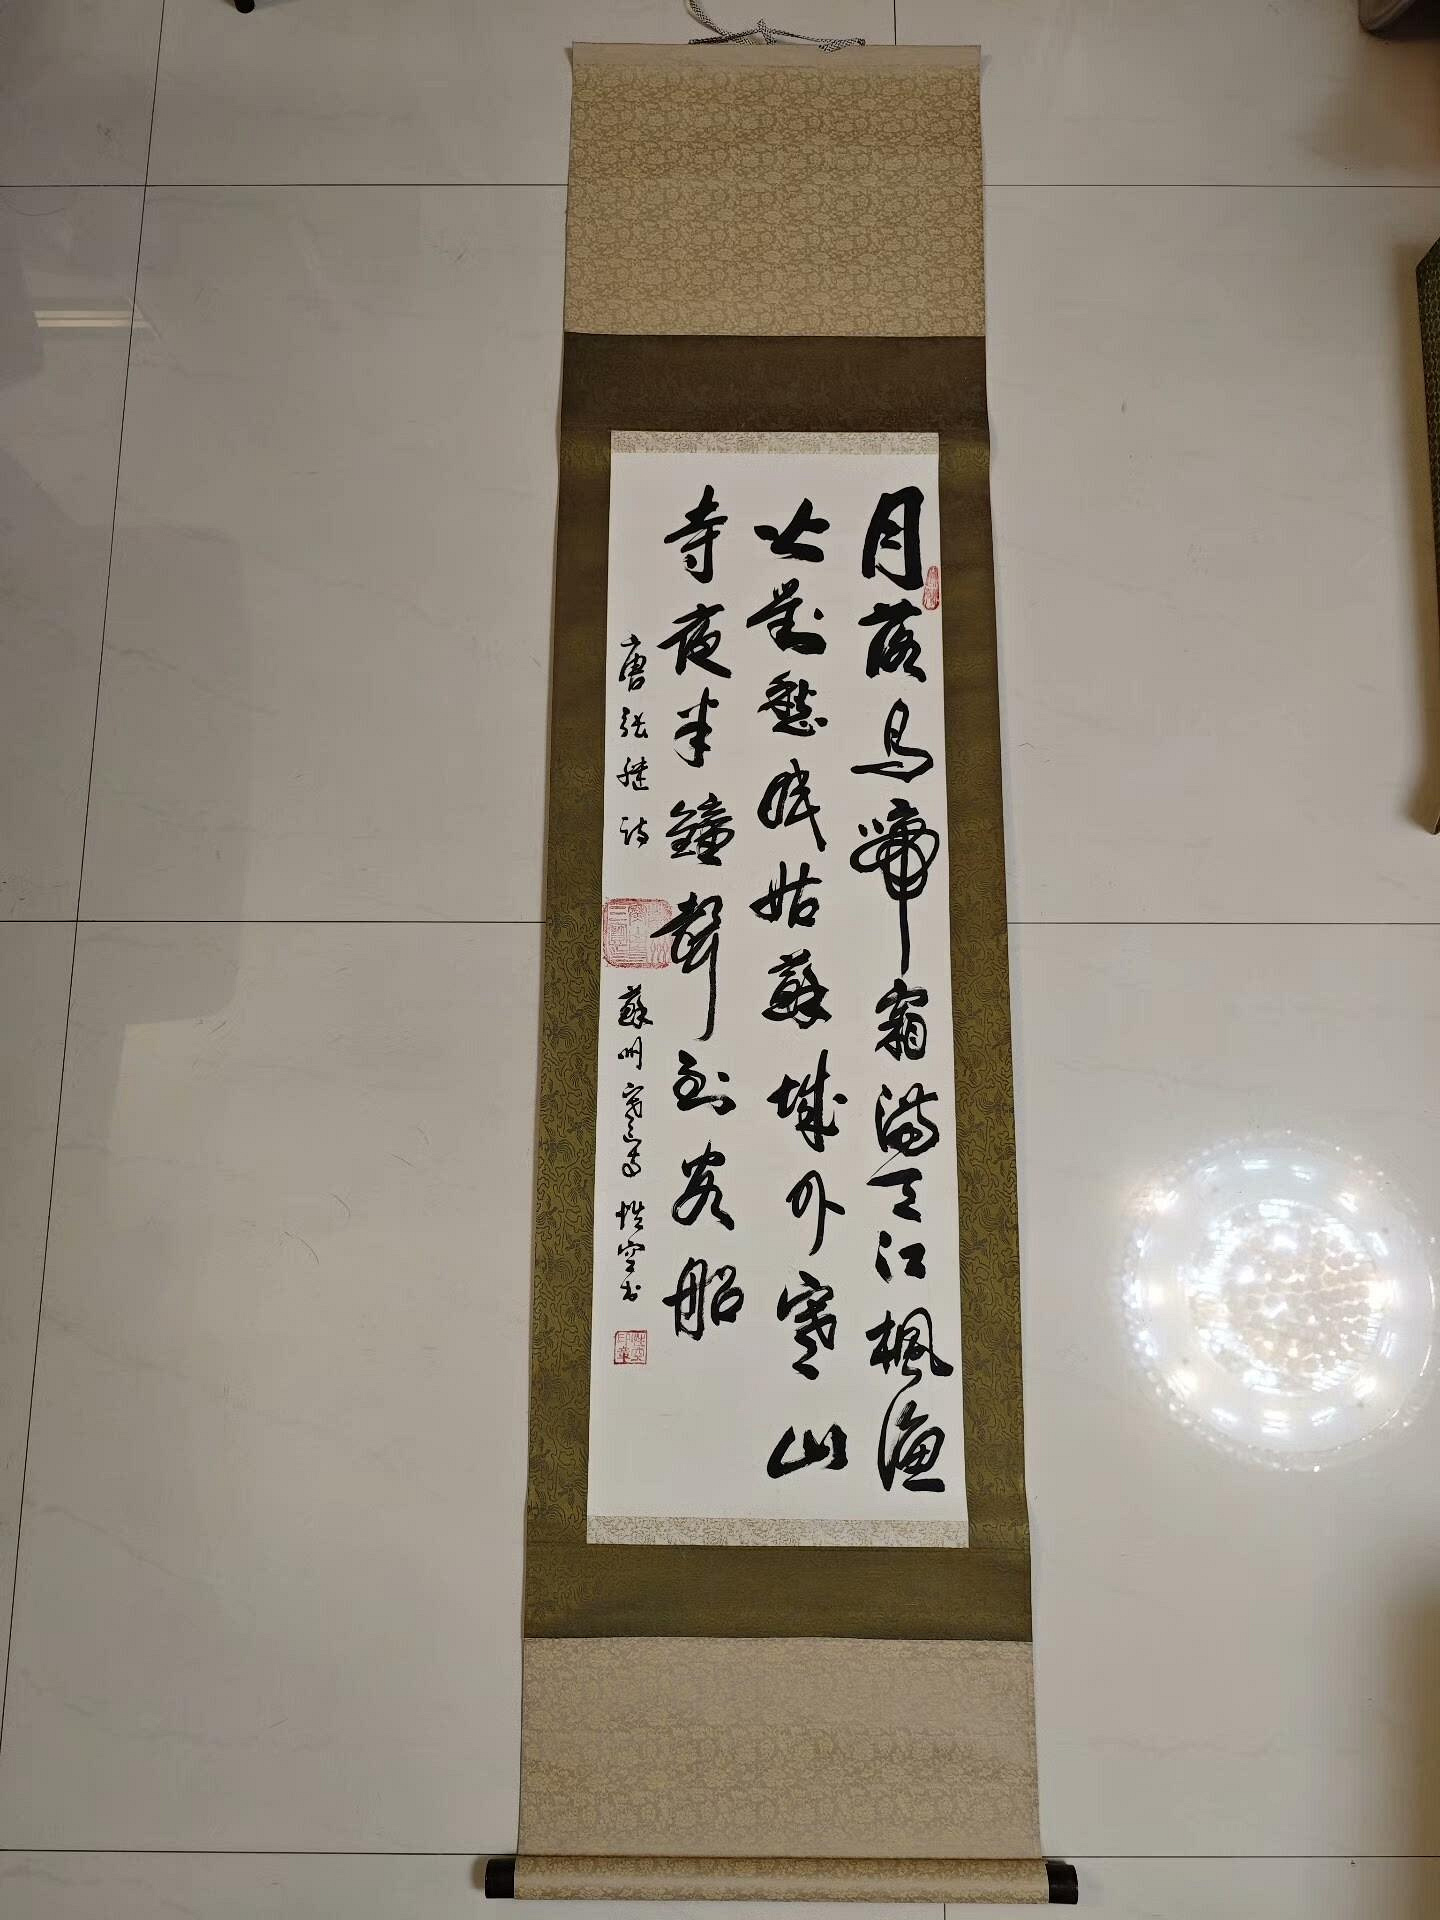 月落烏啼霜滿天江楓漁
火對愁眠姑蘇城外寒山
寺夜半鐘聲到客船
唐張継詩
蘇州寒山寺性空书
性空印章